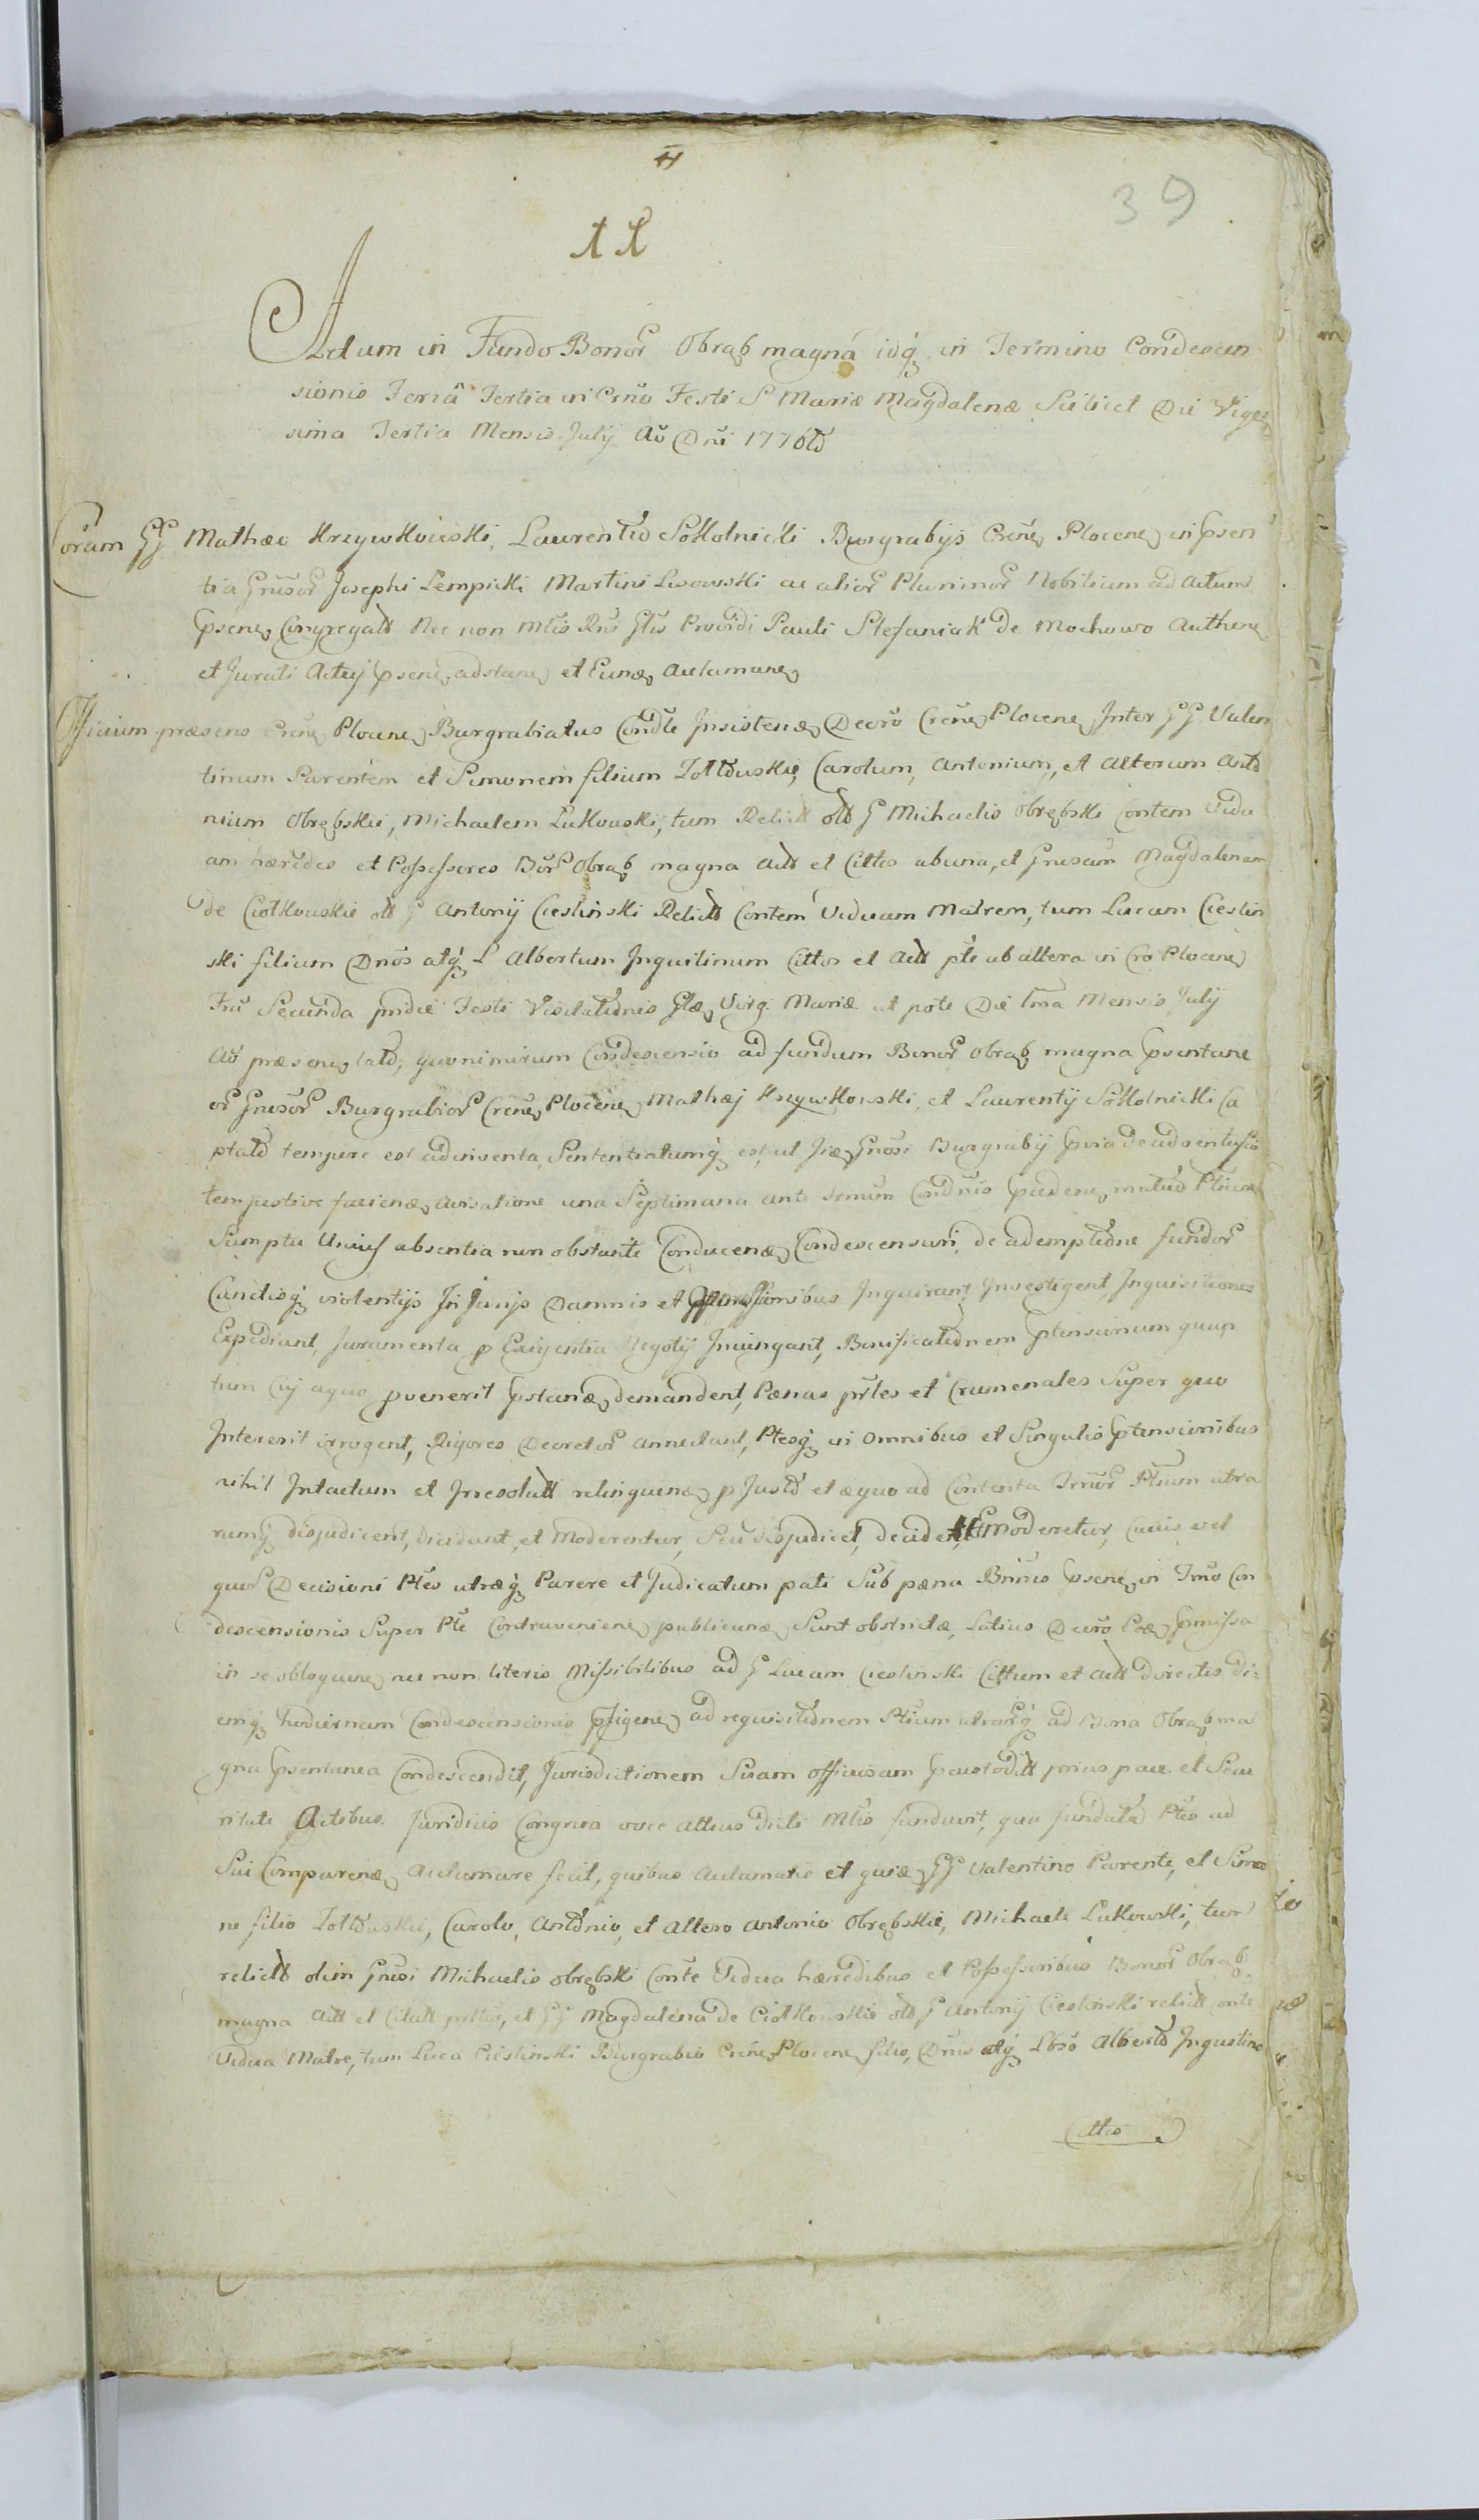 39
A A
Actum in Fundo Bonor Obrąb magna idq in Termino Condescen
sionis Feria Tertia in Crno Festi S Mariæ Magdalenæ Scilicet Die Viges
sima Tertia Mensis July Ao Dni 177
Coram GG Mathæo Krzywkowski, Laurentio Sokolnicki Burgrabijs Crēn Plocen in Psen
tia Gnsor Josephi Lempicki Martini Lisowski ac alior Plurimor Nobilium ad Actum
Psen Congregat Nec non Mtis Rns Gtis Providi Pauli Stefaniak de Mochowo Authen
et Jurati Actuj Psen adstan et Acclaman
Officium præsens Cren Plocen Burgrabiatus Condle Insisten Decro Cren Plocen Inter GG Valen
tinum Parentem et Simonem filium Zołtowskie, Carolum, Antonium, et Alterum Anto
nium Obrębskie, Michaelem Łukowski, tum Relict olt G Michaelis Obrębski Contem Vidu
am hæredes et Possessores Bor Obrąb magna Act et Cittos ab una, et Gnosam Magdalenam
de Ciołkowskie olt G Antonij Cieslinski Relict Contem Viduam Matrem, tum Lucam Cieslin
ski filium Dnos atq L Albertum Inquilinum Cittos et Act pte ab altera in Cro Plocen
Fria Secunda pridie Festi Visitationis Glæ Virg Mariæ ut pote Die 1ma Mensis July
Ao præsen lato, quonimirum Condescensio ad fundum Bonor Obrąb magna Psentane
or Gnsor Burgrabior Cren Plocen Mathæj Krzywkowski, et Laurentij Sokolnicki Ca
ptato tempore est adinventa, Sententiatumq est, ut Gnosi Burgrabij Pvia de adventu suo
tempestive facien avisatione una Septimana ante trnum Condnis Pceden mutuo Ptium
Sumptu Unius absentia non obstante Conducen Condescensuri, de ademptione fundor
Cunctisq violentijs Injurijs Damnis et Oppressionibus Inquirant, Investigent, Inquisitiones
Expediant, Juramenta p Exigentia Negotij Iniungant, Bonificationem Ptensionum quan
tum Cuj aquo pvenerit Pstan demandent, Pænas prles et Crumenales Super quo
Intererit irrogent, Rigores Decretor annectant, Ptesq in Omnibus et Singulis Ptensionibus
nihil Intactum et Irresolut relinquen p Justo et æquo ad Contenta Trnor Ptium utra
rumq disjudicent, decidant, et Moderentur, Seu disjudicet, decidet, et Moderetur, Cuius vel
quor Decisioni Ptes utræq Parere et Judicatum pati Sub pæna Bnnis Psen in Trno Con
descensionis Super Pte Contravenien publican Sunt obstrictæ, Latius Decro Pmissa
in se obloquen nec non literis Missibilibus ad G Lucam Cieslinski Cittum et Act directis di
emq hodiernam Condescensionis Pfigen ad requisitionem Ptium utrarq ad Bona Obrąb ma
gna Psentanea Condescendit, Jurisdictionem Suam officiosam Pcustodit prius pace et Secu
ritate Actibus Juridicis Congrua voce altius dicti Mtis fundavit, qua fundata Ptes ad
Sui Comparen Acclamare fecit, quibus Acclamatis et GG Valentino Parente, et Simo
ne filio Zołtowskie, Carolo, Antonio, et Altero Antonio Obrębskie, Michaele Łukowski, tum
relict olim Gnosi Michaelis Obrębski Conte Vidua hæredibus et Possessoribus Bonor Obrąb
magna Act et Citat prttbs, et GG Magdalena de Ciołkowskie olt G Antonij Cieslinski relict conte
Vidua Matre, tum Luca Cieslinski Burgrabio Cren Plocen filio, Dnis atq Lbso Alberto Inquilino
Cttis